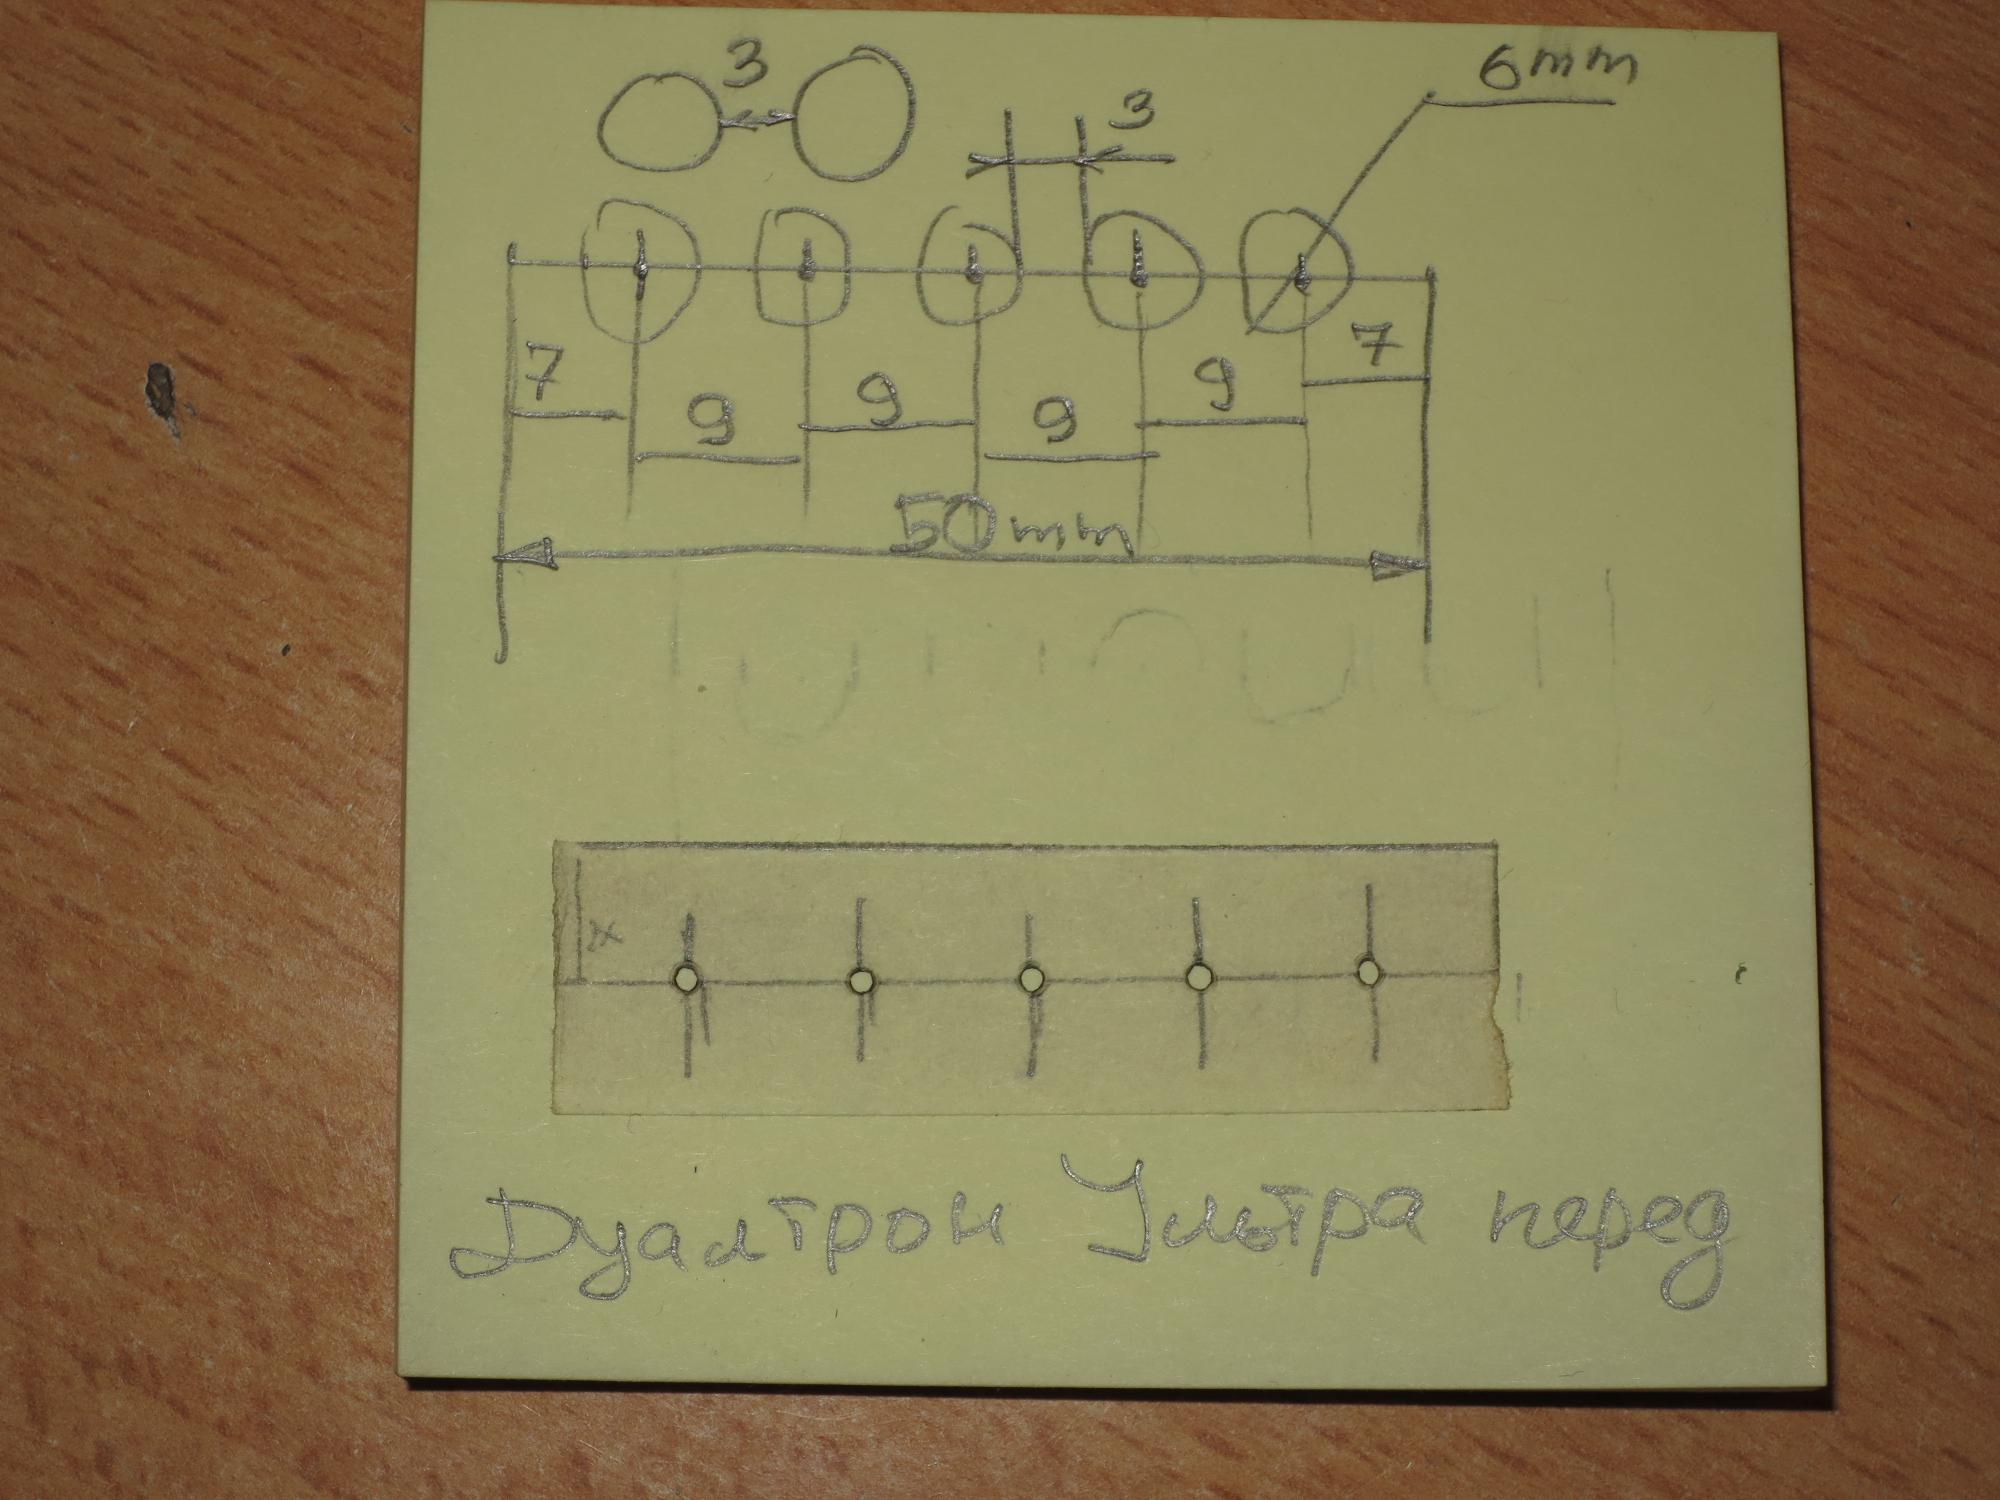 3
6mm
3
7
7
9
9
9
9
50mm
x
Дуалтрон Ультра перед